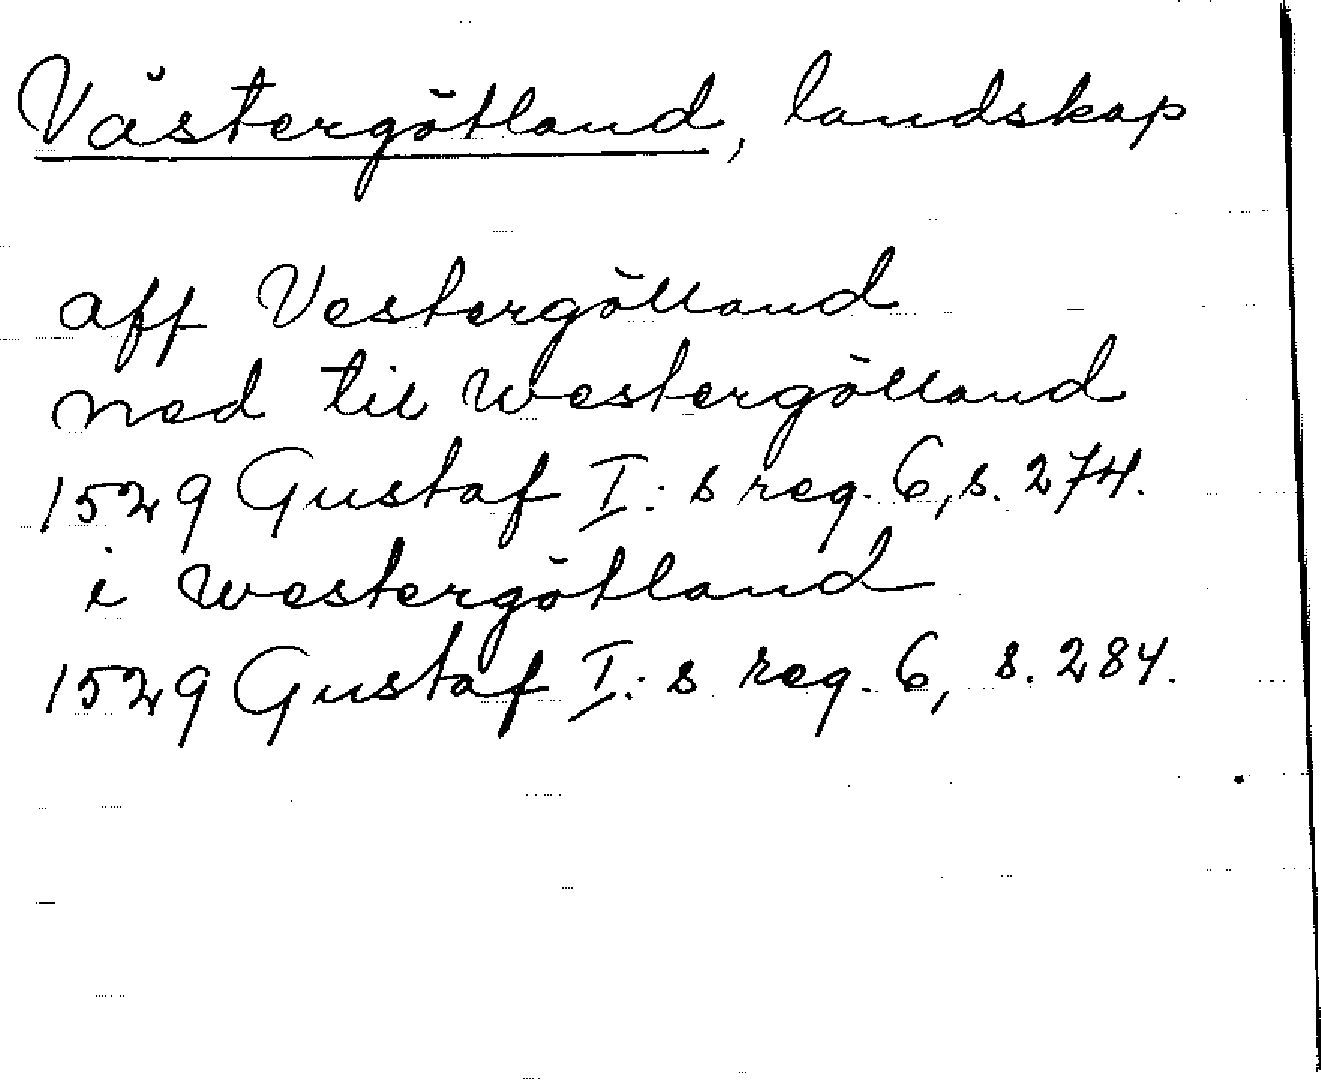 Västergötland, landskap
aff Vestergölland
ned til Westergölland
1529 Gustaf I:s reg. 6, s. 274.
i Westergötland
1529 Gustaf I:s reg. 6, s. 284.